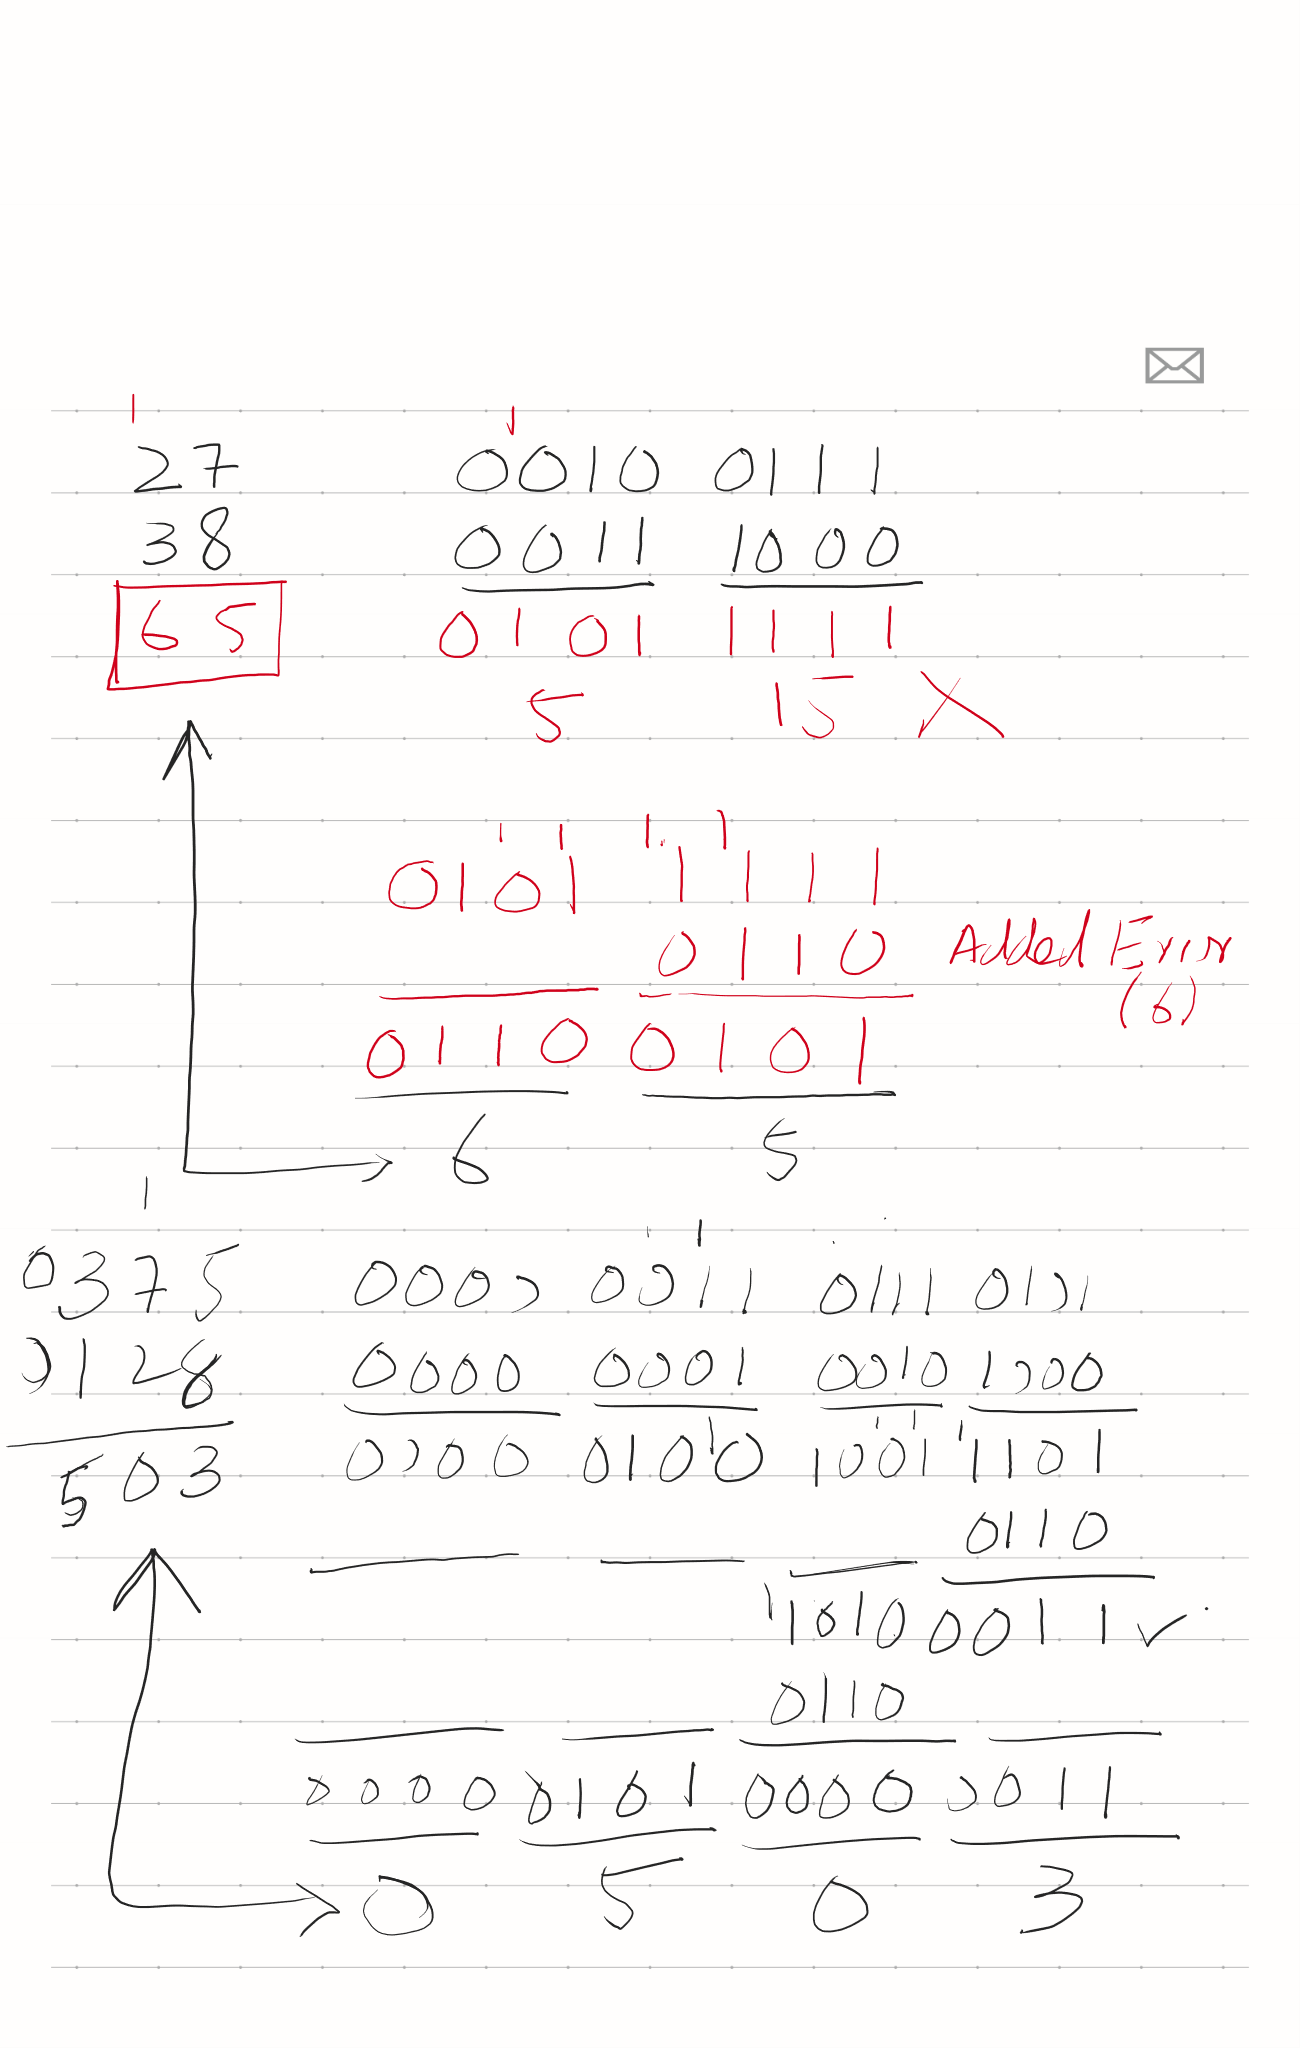 1
27 0010 0111
38 0011 1000
65 0101 1111
5 15 X
1 1 1 1
0101 1111
0110 Added Error
(6)
0110 0101
6 5
1
1
0375 0000 0011 0111 0101
0128 0000 0001 0010 1000
1 1 1 1
503 0000 0100 1001 1101
0110
1
1010 0011 ✓
0110
0000 0101 0000 0011
0 5 0 3